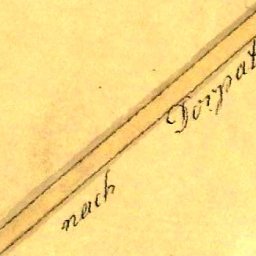 nach Dorpat